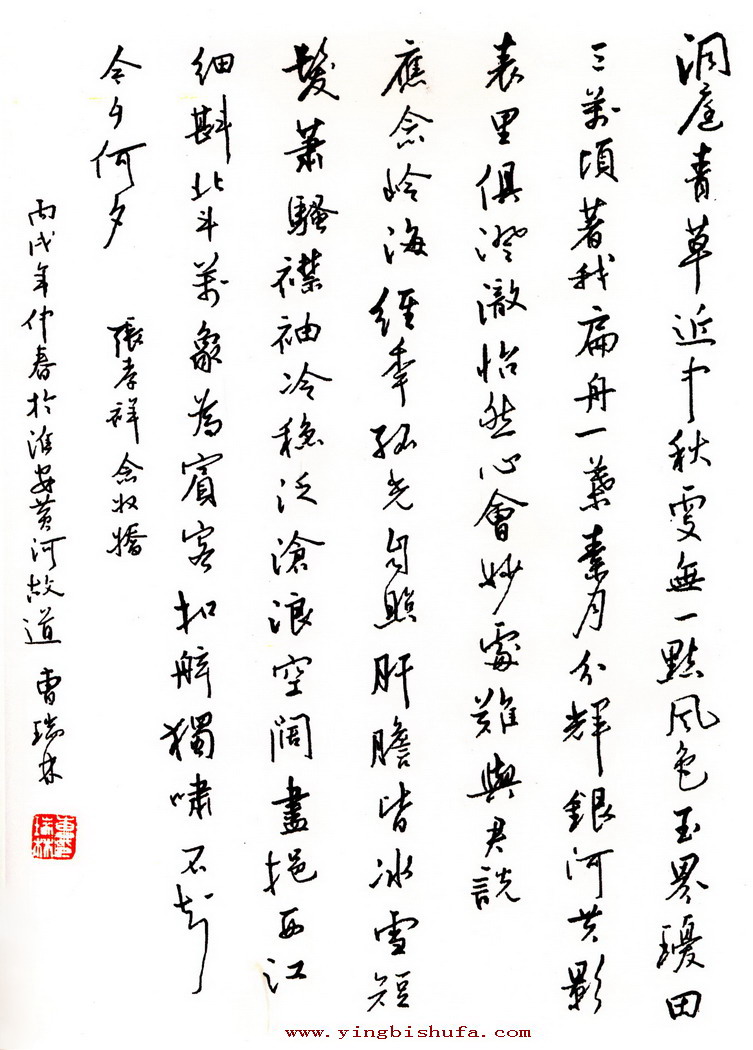 洞庭青草近中秋更無一點風色玉界瓊田
三萬頃著我扁舟一葉素月分輝銀河共影
表里俱澄澈怡然心會妙處難與君説
應念岭海經年孤光自照肝膽皆冰雪短
髮蕭騷襟袖冷穩泛滄浪空闊盡挹西江
細斟北斗萬象為賓客扣舷獨嘯不知
今夕何夕 張孝祥 念奴嬌
丙戌年仲春於淮安黃河故道 曹瑞林
www.yingbishufa.com